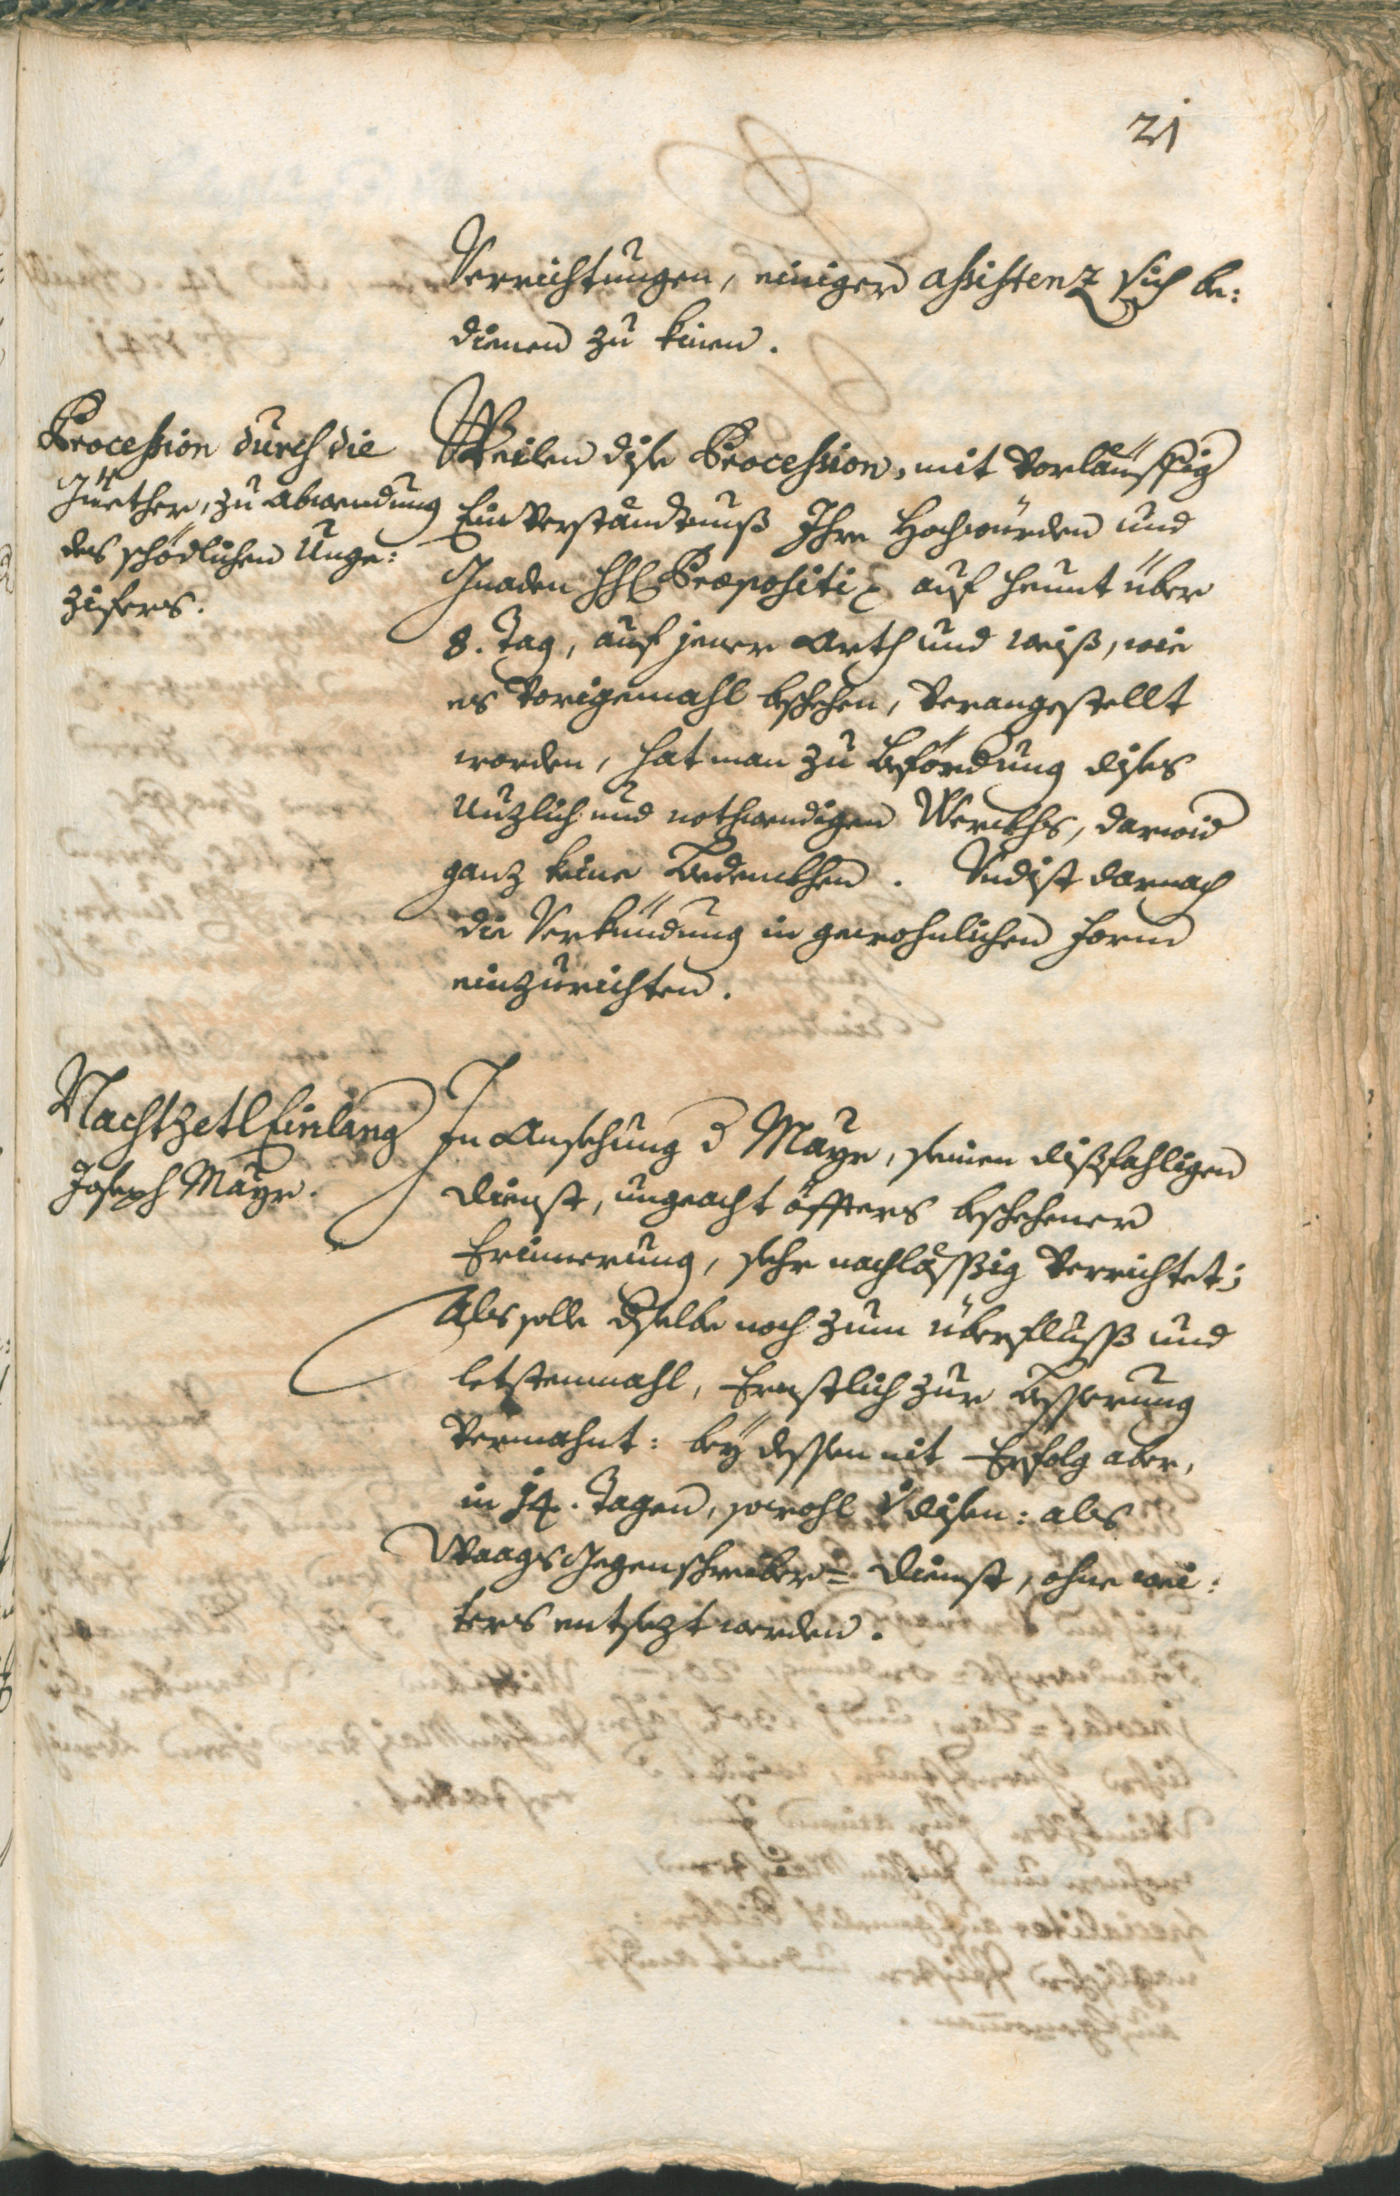 21
Verrichtungen, einiger assistenz sich be:
dienen zu kinen.
Procession durch die
Güether, zu abwendung
des schödlichen Unge:
zifers.
Weilen dise Procession, mit vorläuffig
Einverständtnuß Ihre Hochwürden und
Gnaden HH Præpositi auf heunt über
8. Tag, auf jener Arth und weiß, wie
es vorigemahl beschehen, verangestellt
worden, hat man zu beförderung dises
Nuzlich und nothwendigen Werckhs, darwid
ganz keine bedenckhen. Und ist darnach
die Verkündung in gewohnlichen form
einzurichten.
Nachtzetl Einlang
Joseph Mayr.
In Ansehung d Mayr, seinen dißfahligen
dienst, ungeacht öffters beschehener
Erinnerung, sehr nachläßig verrichtet;
Als solle dselbe noch zum überfluß und
letstenmahl, Ernstlich zur besserung
vermahnt: bey dessen nit Erfolg aber,
in 14. Tagen, sowohl disen: als
Waags Gegenschreiber= dienst, ohne wei:
ters entsezt werden.